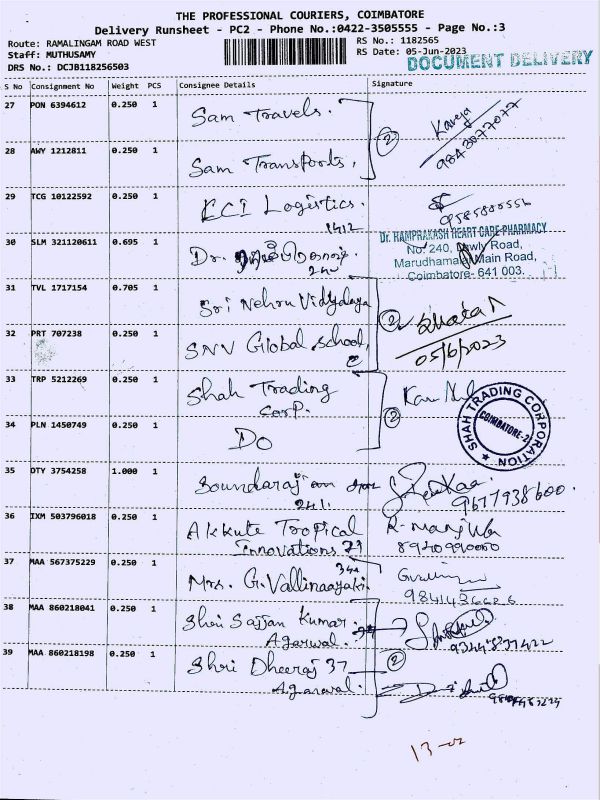 THE PROFESSIONAL COURIERS, COIMBATORE
Delivery Runsheet - PC2 - Phone No.:0422-3505555 - Page No.:3
Route: RAMALINGAM ROAD WEST
RS No.: 1182565
Staff: MUTHUSAMY
RS Date: 05-Jun-2023
DOCUMENT DELIVERY
DRS No.: DCJB118256503
S No Consignment No Weight PCS Consignee Details Signature
27 PON 6394612 0.250 1 Sam Travels.
2
9843077077
28 AWY 1212811 0.250 1 Sam Transports,
29 TCG 10122592 0.250 1 ECI Logistics.
1412
30 SLM 321120611 0.695 1 Dr.
Dr. RAMPRAKASH HEART CARE PHARMACY
No: 240, Road,
Marudhamalai Main Road,
Coimbatore- 641 003.
31 TVL 1717154 0.705 1 Sri Nehru Vidyalaya
2
32 PRT 707238 0.250 1 SNV Global School,
05/6/2023
33 TRP 5212269 0.250 1 Shah Trading
Corp.
2
SHAH TRADING CORPORATION
COIMBATORE-2
34 PLN 1450749 0.250 1 Do
35 DTY 3754258 1.000 1 Soundaraj
241.
9677938600.
36 IXM 503796018 0.250 1 Akkute Tropical
Innovations
R. Manju
37 MAA 567375229 0.250 1 Mrs. G. Vallinaayaki.
344
38 MAA 860218041 0.250 1 Shri Sajjan Kumar
Agarwal.
2
39 MAA 860218198 0.250 1 Shri Dheeraj 37
Agarwal.